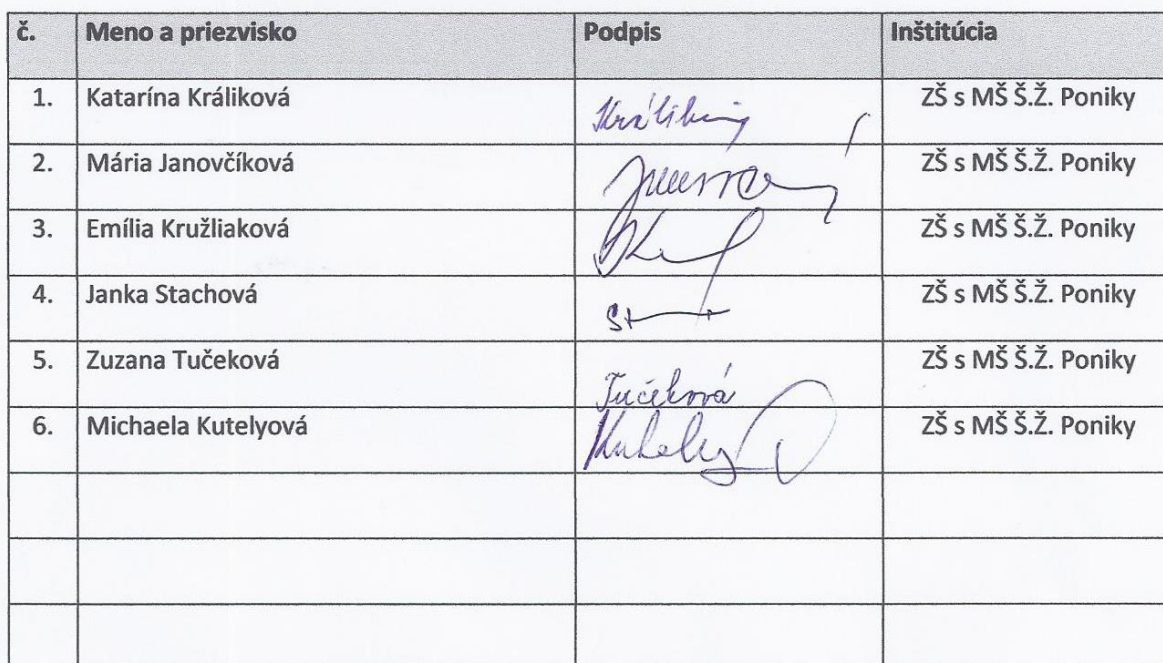 č. Meno a priezvisko Podpis Inštitúcia
1. Katarína Králiková Králiková ZŠ s MŠ Š.Ž. Poniky
2. Mária Janovčíková ZŠ s MŠ Š.Ž. Poniky
3. Emília Kružliaková ZŠ s MŠ Š.Ž. Poniky
4. Janka Stachová ZŠ s MŠ Š.Ž. Poniky
5. Zuzana Tučeková Tučeková ZŠ s MŠ Š.Ž. Poniky
6. Michaela Kutelyová ZŠ s MŠ Š.Ž. Poniky